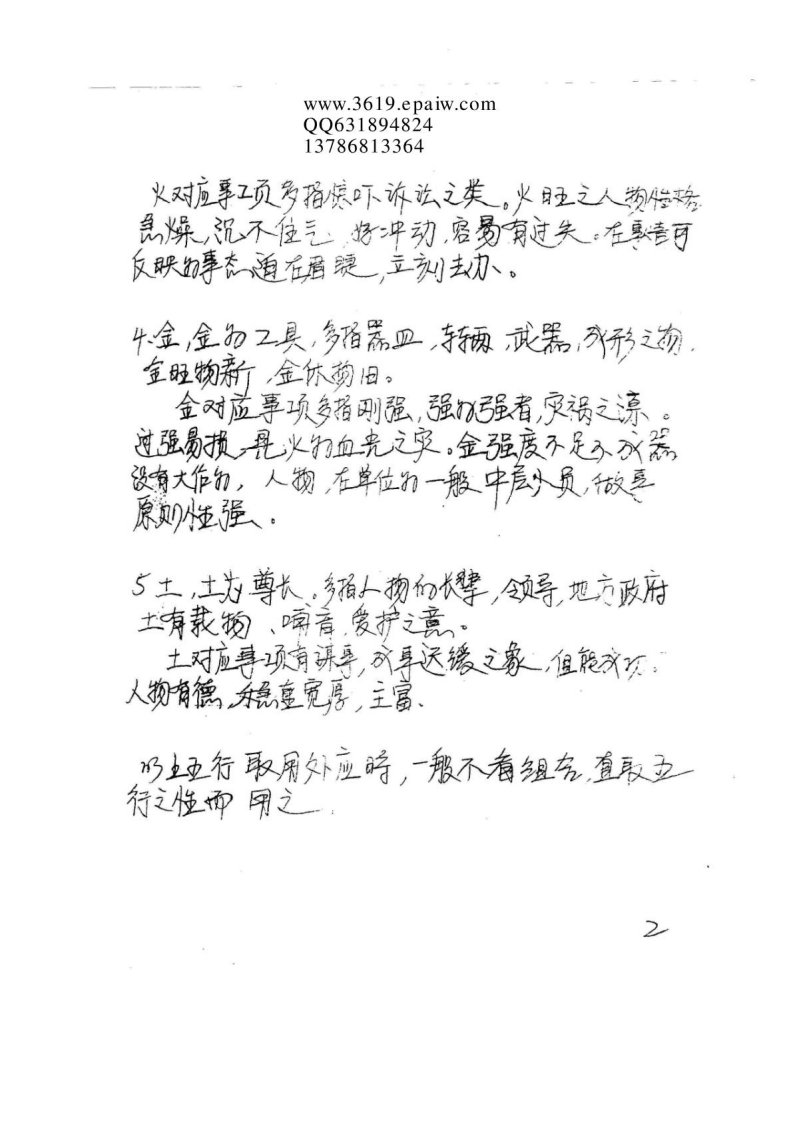 www.3619.epaiw.com
QQ631894824
13786813364
火对应事项多指惊吓诉讼之类。火旺之人物性格
急燥,沉不住气 好冲动,容易有过失。在事情可
反映为事态迫在眉睫,立刻去办、。
4.金,金为工具,多指器皿,车辆 武器,成形之物.
金旺物新,金休物旧。
金对应事项多指刚强,强为强者,灾祸之源。
过强易损 见火为血光之灾。金强度不足不成器
没有大作为, 人物,在单位为一般中层人员,做事
原则性强。
5土,土为尊长,多指人物的长辈,领导,地方政府
土有载物、哺育,爱护之意。
土对应事项有谋事,成事迟缓之象,但能成功.
人物有德,稳重宽厚,主富.
以上五行取用外应时,一般不看组合,直取五
行之性而用之.
2